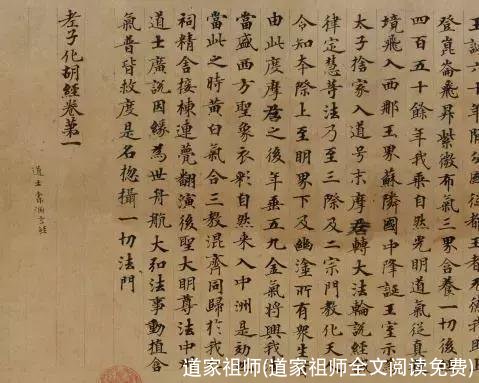 登崑崙飛昇紫微布氣三界含養一切後
四百五十餘年我乘自然光明道氣從真
境飛入西那王界蘇隣國中降誕王室示
太子捨家入道号末摩尼轉大法輪說經
律定慧等法乃至三際及二宗門教化天
令知本際上至明界下及幽塗所有衆生
由此度摩尼之後年垂五九金氣將興我
當盛西方聖象衣彩自然来入中洲是効
當此之時黃白氣合三教混齊同歸於我
祠精舍接棟連甍翻演後聖大明尊法中
道士廣說因緣為世舟航大弘法事動植含
氣普皆救度是名惣攝一切法門
老子化胡經卷第一
道士
道家祖师(道家祖师全文阅读免费)